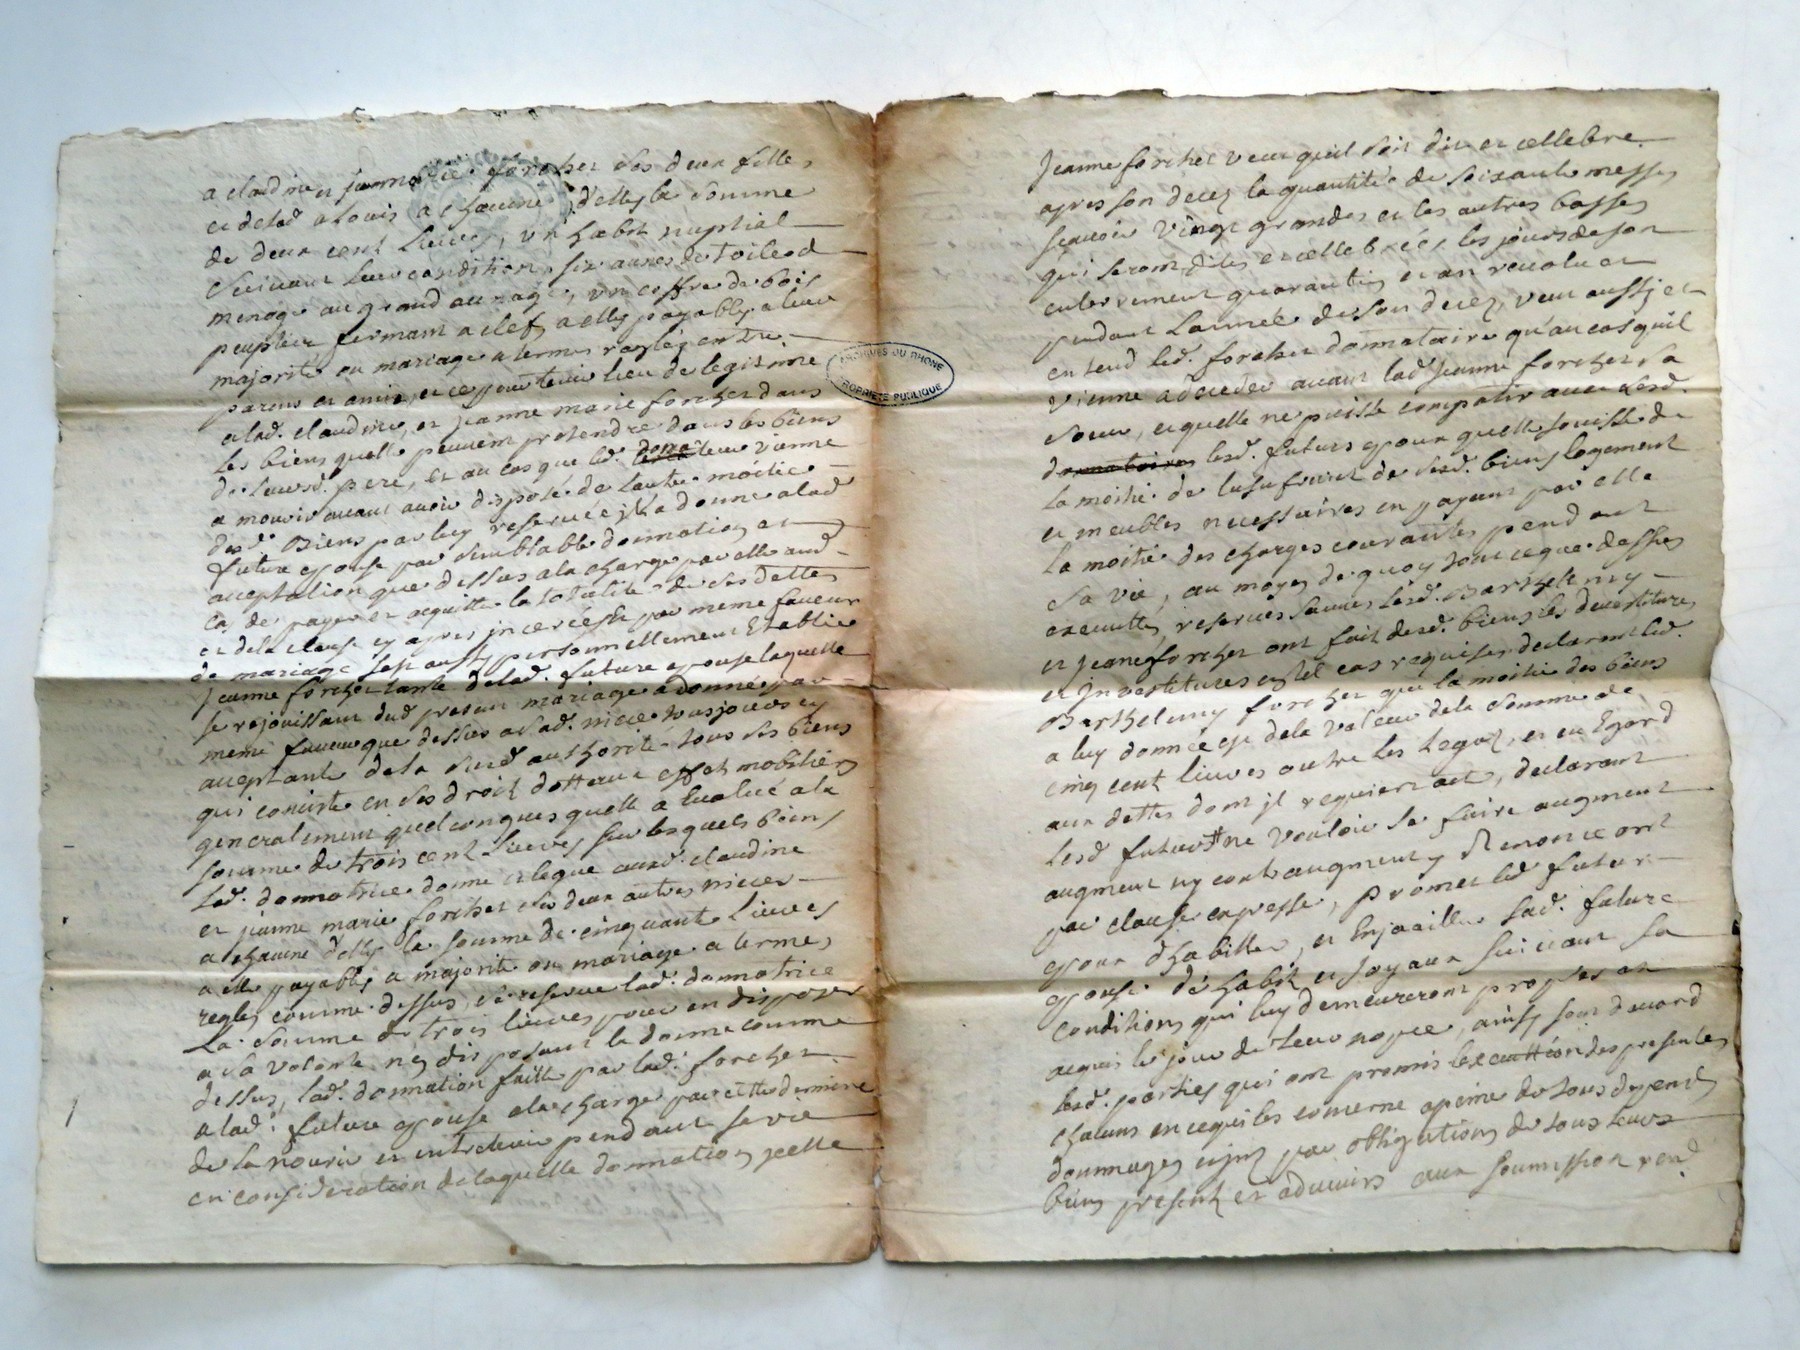 a claudine et jeanne marie forchet ses deux filles
et delad a chacune d'elles la somme
de deux cent livres, un habit nuptial
suivant leur condition, six aunes de toile d
menage au grand aunage, un coffre de bois
peuplier fermant a clef, a elles payables a leur
majorité ou mariage a termes reglés entre
parens et amis, et ce pour tenir lieu de legitime
alad. claudine, et jeanne marie forchet dans
les biens quelles peuvent pretendre dans les biens
de leurd. pere, et au cas que led. donateur vienne
a mourir avant avoir disposé de lautre moitie
desd. Biens par luy reservée jl la donne a lad
future epouse par semblable donnation et
aceptation que dessus a la charge par elle aud
cas de payer et acquitter la totalité de ses dettes
et de la clause cy apres jnceréeste par meme faveur
de mariage sest aussy personnellement Etablie
Jeanne forchet tante delad. future epouse laquelle
se rejouissant dud present mariage a donné par
meme faveur que dessus a sad. niece tousjours cy
aceptante de la susd authorité tous ses biens
qui consiste en ses droit dotteaux effet mobiliers
generalement quelconques quelle a Evalué a la
somme de trois cent livres sur lesquels biens
Lad. donnatrice donne et legue auxd. claudine
et jeanne marie forchet ses deux autres nieces
a chacune d'elles la somme de cinquante livres
a elle payables a majorité ou mariage a termes
regles comme dessus, se reserve lad. donnatrice
La somme de trois livres pour en disposer
a sa volonte ny disposant la donne comme
dessus, lad. donnation faitte par lad. forchet
a lad. future epouse a la charge par cette derniere
de la nourir et entretenir pendant sa vie
en consideration de laquelle donnation jcelle
Jeanne forchet veut quil soit dit et cellebre
apres son decez la quantité de soixante messes
sçavoir vingt grandes et les autres basses
qui seront dites et cellebrées les jours de son
enterrement quarantin et an revolu et
pendant lannée de son decez, veut aussy et
entend led. forchet donnataire qu'au cas quil
vienne a deceder avant lad. Jeanne forchet sa
soeur, et quelle ne puisse compatir avec lesd.
donnataires lesd. futurs epoux quelle jouisse de
La moitié de lusufruit de sesd. biens logement
et meubles necessaires en payant par elle
La moitié des charges courantes pendant
sa vie, au moyen de quoy tout ce que dessus
executté, reserves sauves lesd. Barthelemy
et jeanne forchet ont fait desd. biens les devestitures
et jnvestitures en tel cas requises declarant led.
Barthelemy forchet que la moitie des biens
a luy donnée est de la valeur de la somme de
cinq cent livres outre les Legaz, et eu Egard
aux dettes dont jl requiert act, declarant
Lesd futurs ne vouloir se faire augment
augment ny contraugment y Renoncent
par clause expresse, promet led futur
epoux d'habiller, et Enjoailler lad. future
epouse de habit et joyaux suivant sa
condition qui luy demeureront propres et
acquis le jour de leur nopce, ainsy font d'acord
lesd. parties qui ont promis lexecuttion des presentes
chacuns en ce qui les concerne a peine de tous depends
dommages par obligations de tous leurs
biens presents et advenirs aux soumission rend.
ARCHIVES DU RHONE
PROPRIETE PUBLIQUE